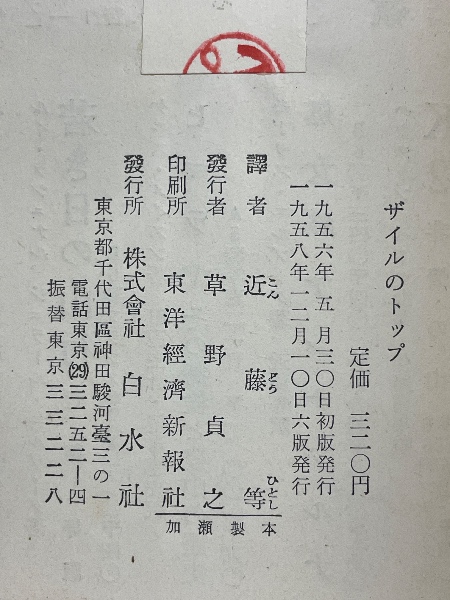 ザイルのトップ
定価 三二〇円
一九五六年 五 月三〇日初版発行
一九五八年一二月一〇日六版発行
譯者 近藤等
こん どう ひとし
發行者 草野貞之
印刷所 東洋經濟新報社
發行所 株式會社 白水社
東京都千代田區神田駿河臺三の一
電話東京(29)三二五二―四
振替東京 三三二二八
加瀬製本